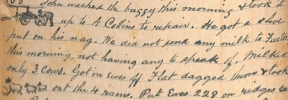 John washed the buggy this morning & took it
up to A Collins to repair. He got a shoe
put on his nag. We did not send any milk to Factory
this morning, not having any to speak of. Milked
only 3 Cows. Got in Ewes off Flat dagged them & took
out the 4 rams. Put Ewes 228 on ridges